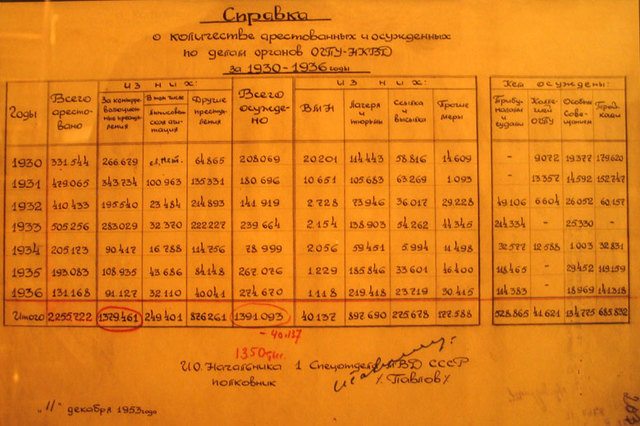 Справка
о количестве арестованных и осужденных
по делам органов ОГПУ-НКВД
за 1930-1936 годы
Годы Всего арестовано из них: Всего осуждено из них: Кем осуждены:
За контрреволюционные преступления В том числе антисоветская агитация Другие преступления ВМН Лагеря и тюрьмы Ссылка и высылка Прочие меры Трибуналами и судами Коллегией ОГПУ Особым совещанием Тройками
1930 331.544 266.679 64.865 208.069 20.201 114.443 58.816 14.609 - 9.072 19.377 179.620
1931 479.065 343.734 100.963 135.331 180.696 10.651 105.683 63.269 1.093 - 13.357 14.592 152.747
1932 410.433 195.540 23.484 214.893 141.919 2.728 73.946 36.017 29.228 49.106 6.604 26.052 60.157
1933 505.256 283.029 32.370 222.227 239.664 2.154 138.903 54.262 44.345 214.334 - 25.330 -
1934 205.173 90.417 16.788 114.756 78.999 2.056 59.451 5.994 11.498 32.577 12.588 1.003 32.831
1935 193.083 108.935 43.686 84.148 267.076 1.229 185.846 33.601 46.400 118.465 - 29.452 119.159
1936 131.168 91.127 32.110 40.041 274.670 1.118 219.418 23.719 30.415 114.383 - 18.969 141.318
Итого 2255.722 1379.461 249.401 876.261 1391.093 40.137 897.690 275.678 177.588 528.865 41.621 134.775 685.832
- 40.137
1350
И.О. Начальника 1 Спецотдела МВД СССР
полковник /Павлов/
"11" декабря 1953 года